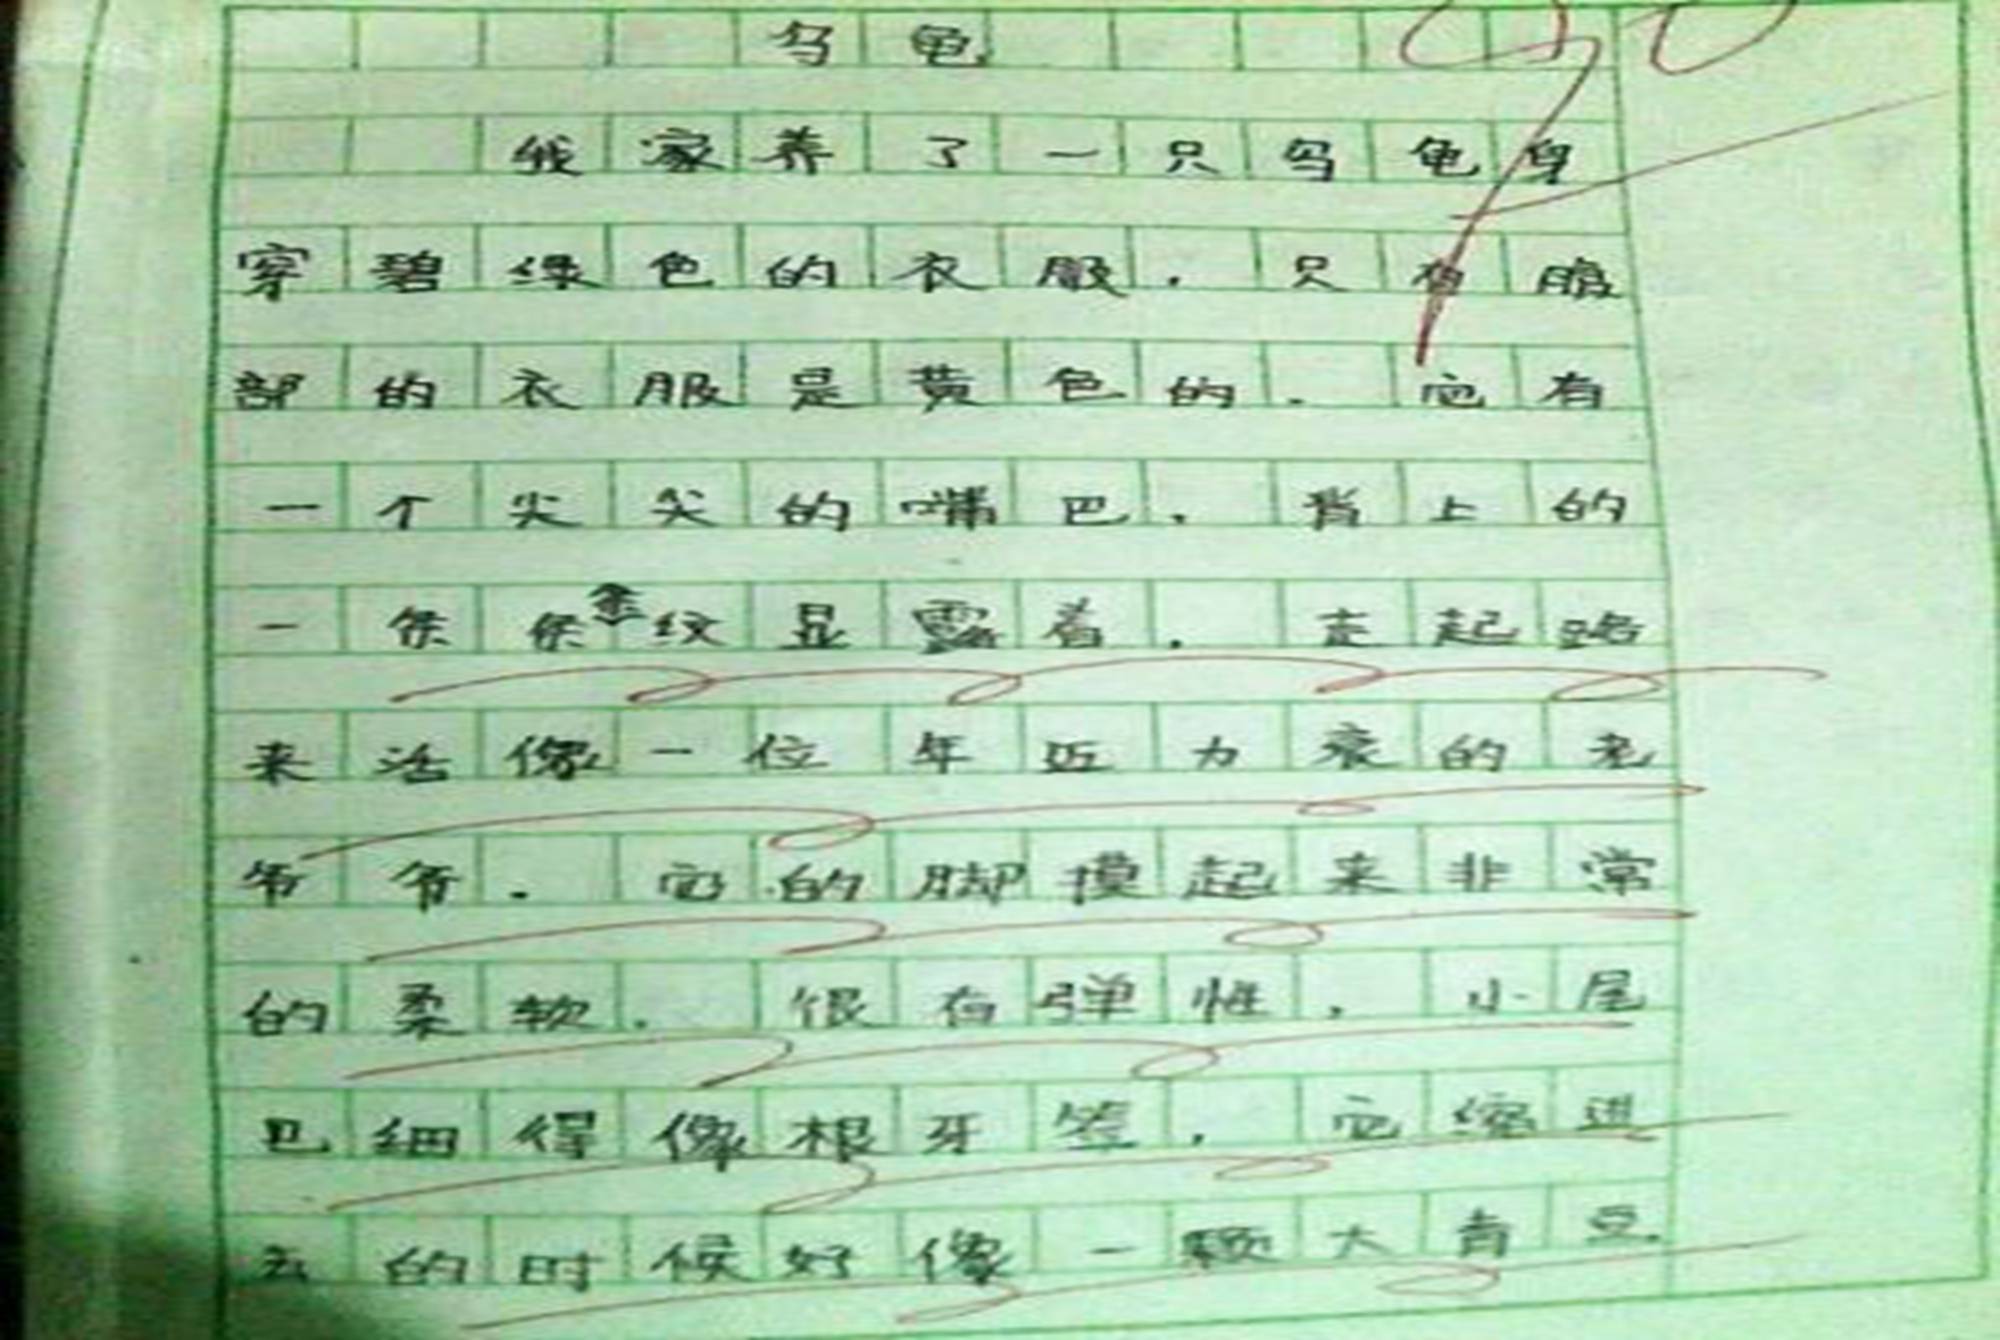 乌龟
我家养了一只乌龟身
穿碧绿色的衣服，只有腹
部的衣服是黄色的。它有
一个尖尖的嘴巴，背上的
一条条条纹显露着，走起路
来活像一位年迈力衰的老
爷爷。它的脚摸起来非常
的柔软，很有弹性，小尾
巴细得像根牙签，它缩进
去的时候好像一颗大青豆